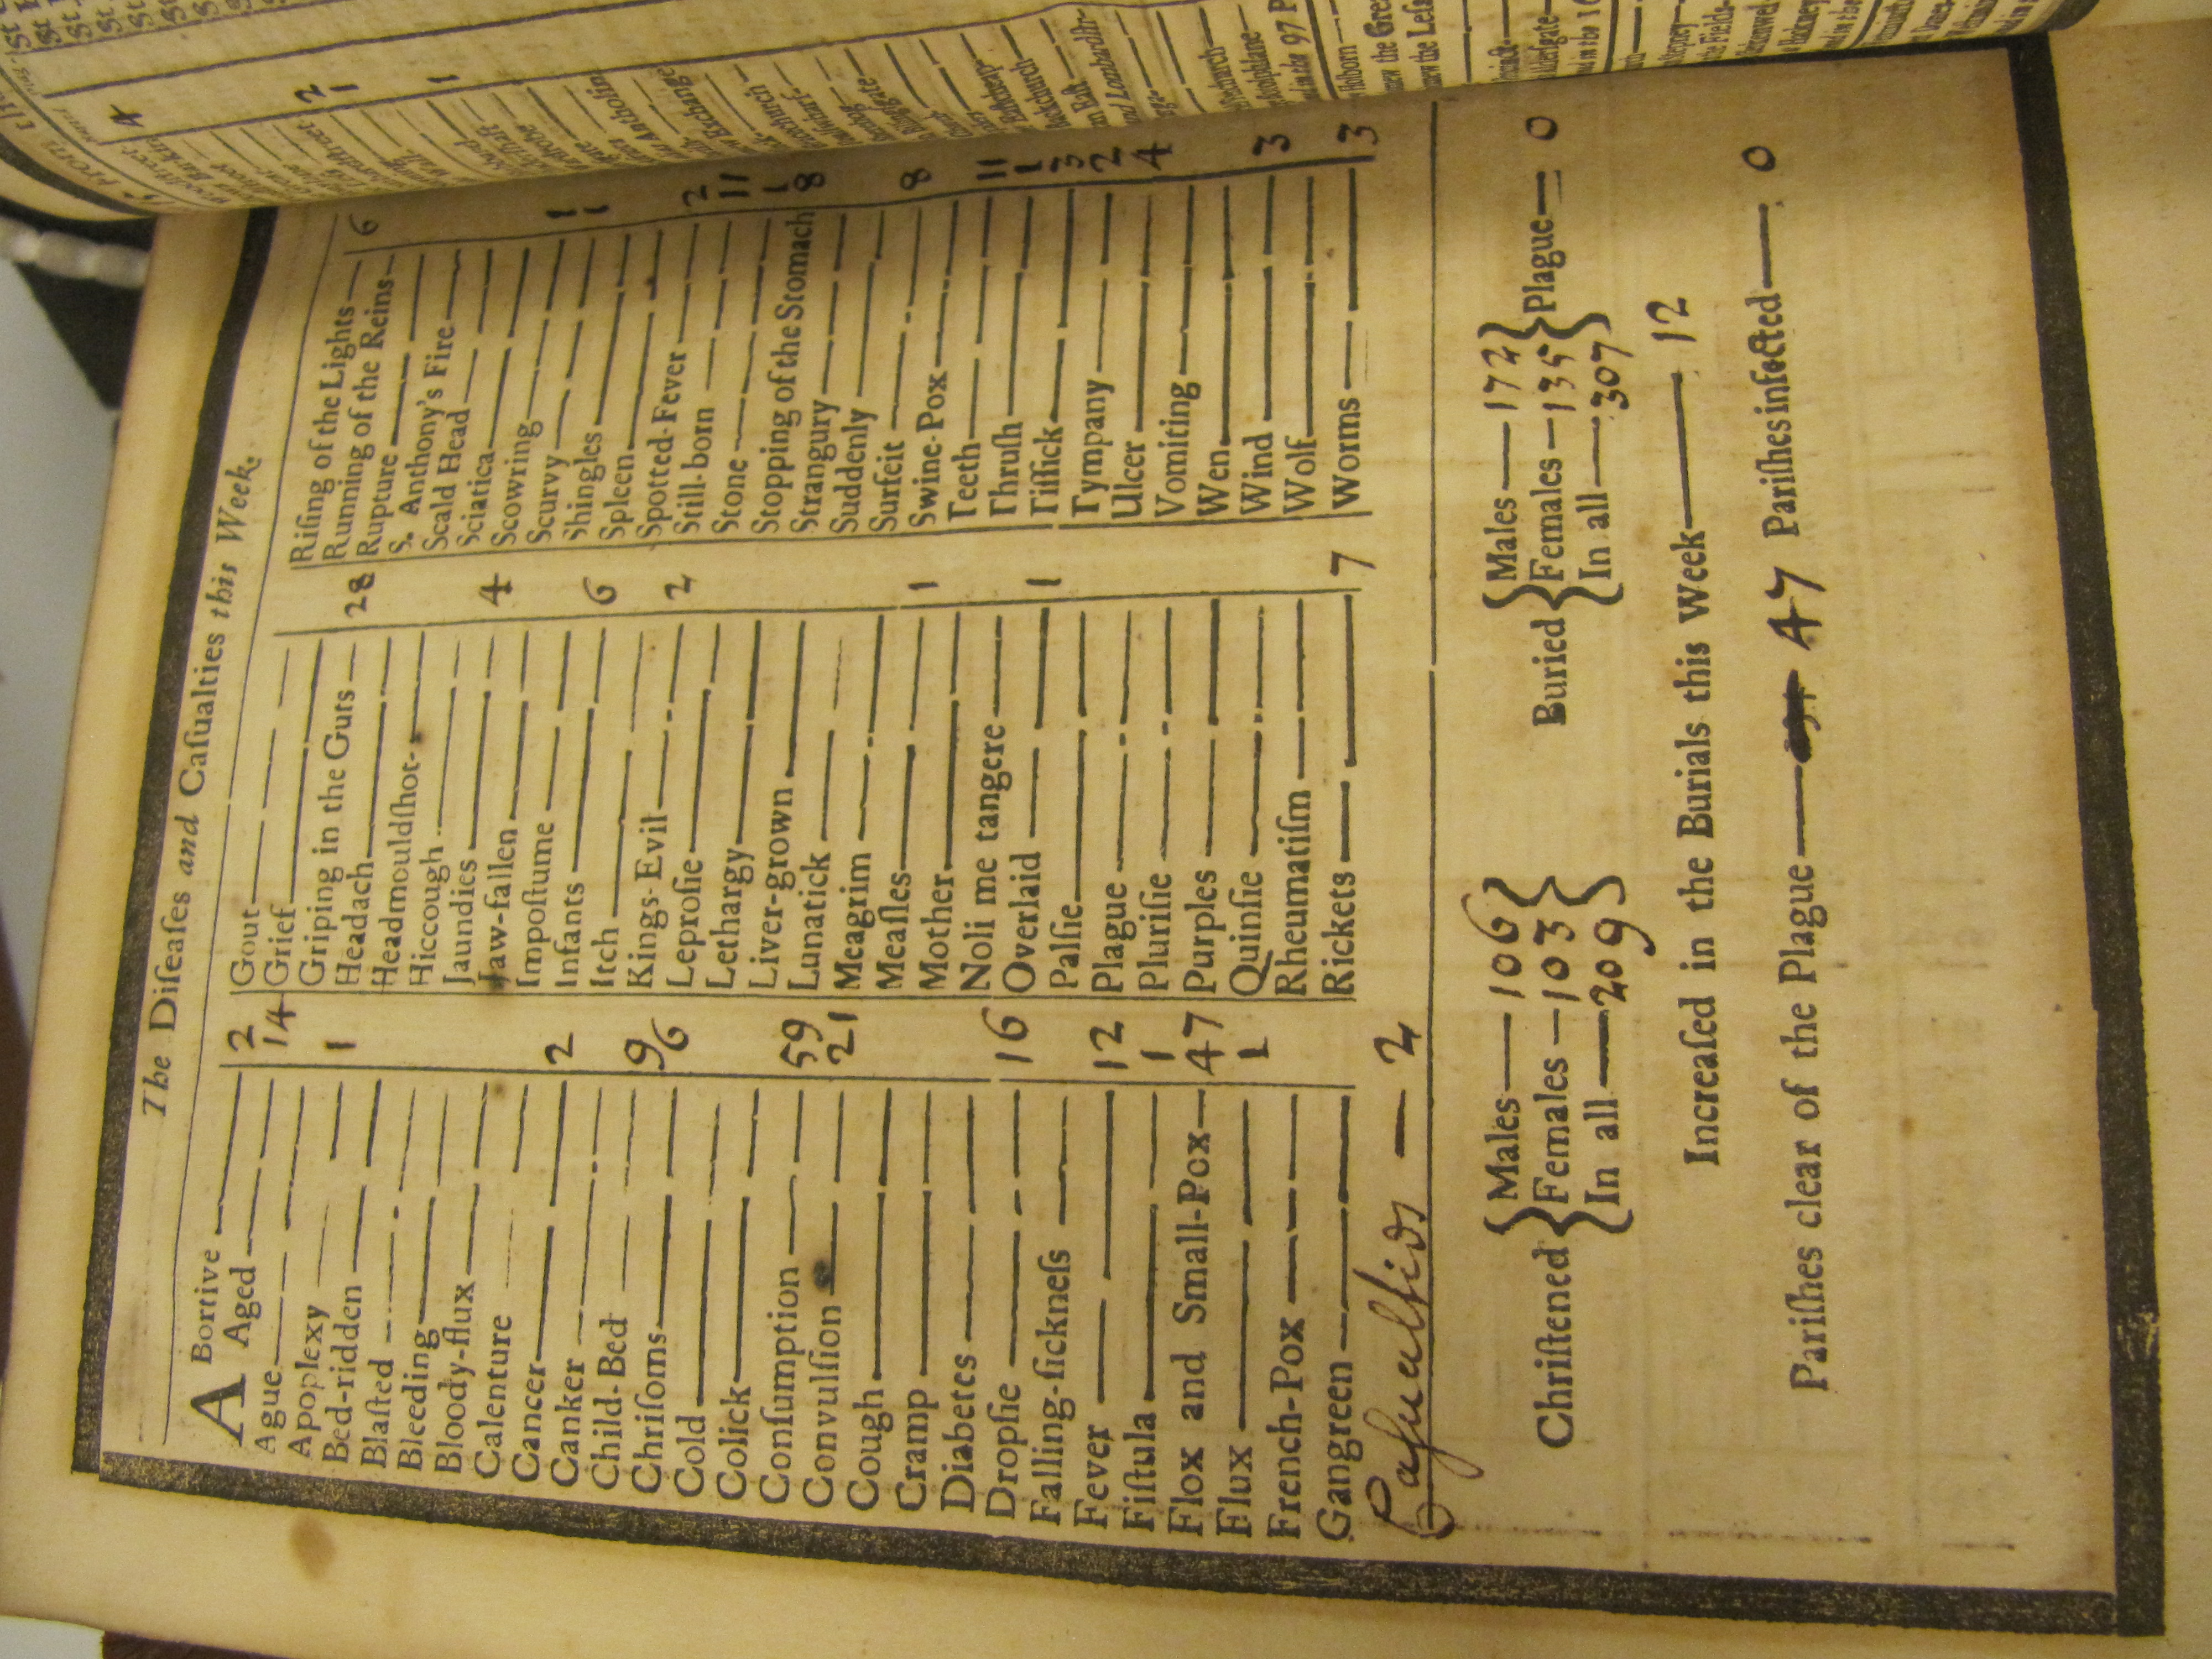 The Diſeaſes and Caſualties this Week.
ABortive 2
Aged 14
Ague
Apoplexy 1
Bed-ridden
Blaſted
Bleeding
Bloody-flux
Calenture
Cancer 2
Canker
Child-Bed 9
Chriſoms 6
Cold
Colick
Conſumption 59
Convulſion 21
Cough
Cramp
Diabetes
Dropſie 16
Falling-ſickneſs
Fever 12
Fiſtula 1
Flox and Small-Pox 47
Flux 1
French-Pox
Gangreen
Gout
Grief
Griping in the Guts 28
Headach
Headmouldſhot
Hiccough
Jaundies 4
Jaw-fallen
Impoſtume
Infants 6
Itch
Kings-Evil 2
Leproſie
Lethargy
Liver-grown
Lunatick
Meagrim
Meaſles 1
Mother
Noli me tangere
Overlaid 1
Palſie
Plague
Pluriſie
Purples
Quinſie
Rheumatiſm
Rickets 7
Riſing of the Lights 6
Running of the Reins
Rupture
S. Anthony's Fire
Scald Head
Sciatica
Scowring 1
Scurvy 1
Shingles
Spleen
Spotted-Fever 2
Still-born 11
Stone 1
Stopping of the Stomach 8
Strangury
Suddenly
Surfeit 8
Swine-Pox
Teeth 11
Thruſh 1
Tiſſick 3
Tympany 2
Ulcer 4
Vomiting
Wen
Wind 3
Wolf
Worms 3
Casualtids — 2
Chriſtened { Males — 106 Females — 103 In all — 209 }
Buried { Males — 172 Females — 135 In all — 307 } Plague — 0
Increaſed in the Burials this Week — 12
Pariſhes clear of the Plague — 47 Pariſhes infected — 0